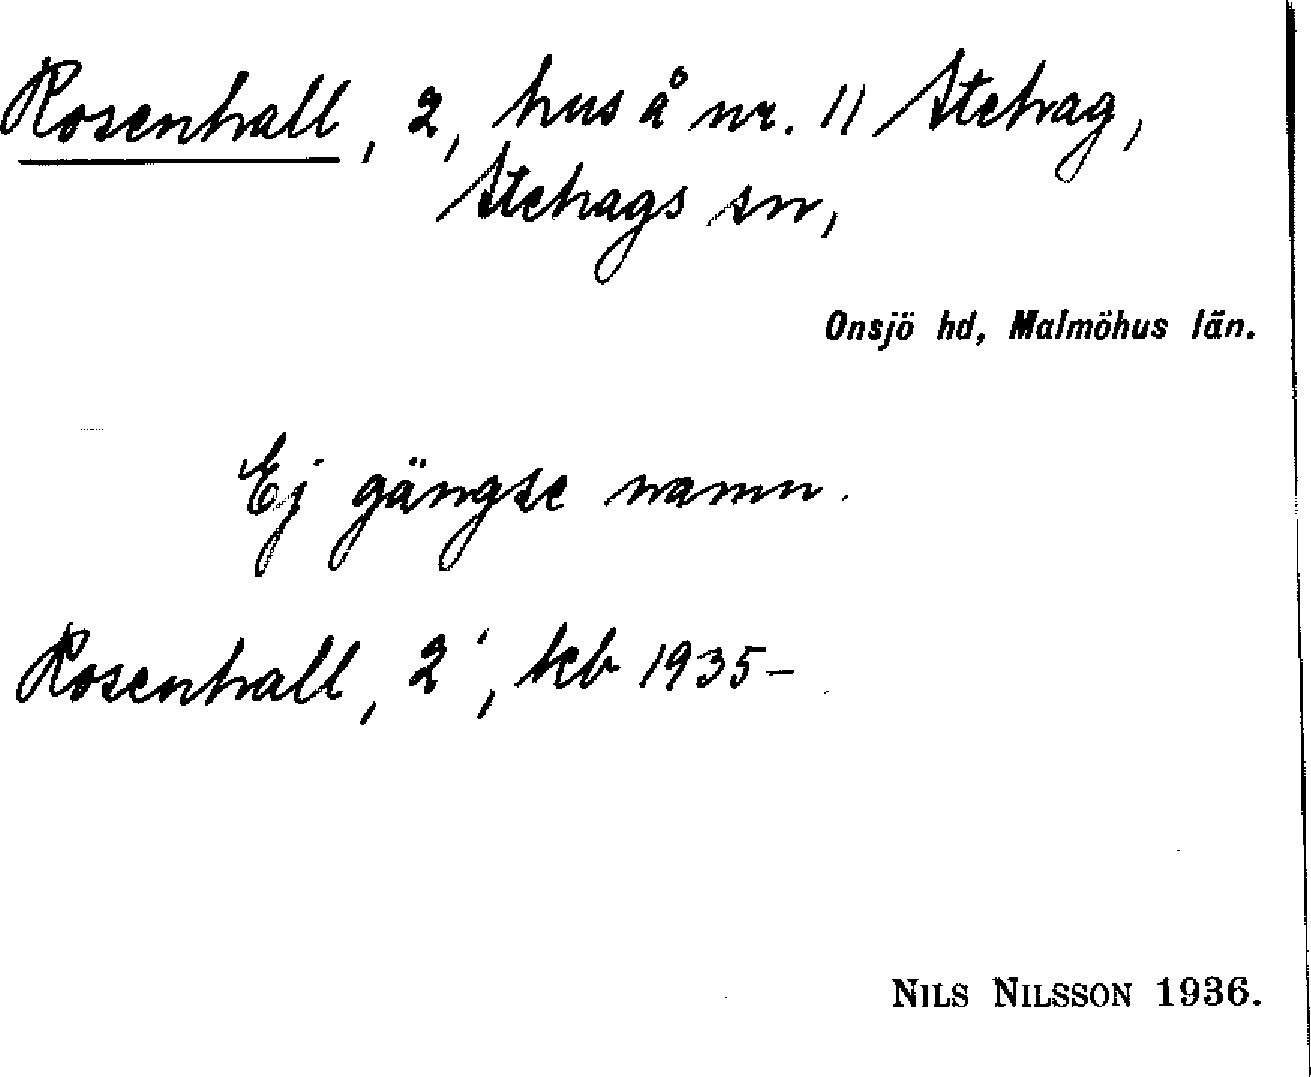 Rosenhall, 2, hus å nr. 11 Stehag,
Stehags sn,
Onsjö hd, Malmöhus län.
Ej gängse namn.
Rosenhall, 2', kb 1935-
NILS NILSSON 1936.